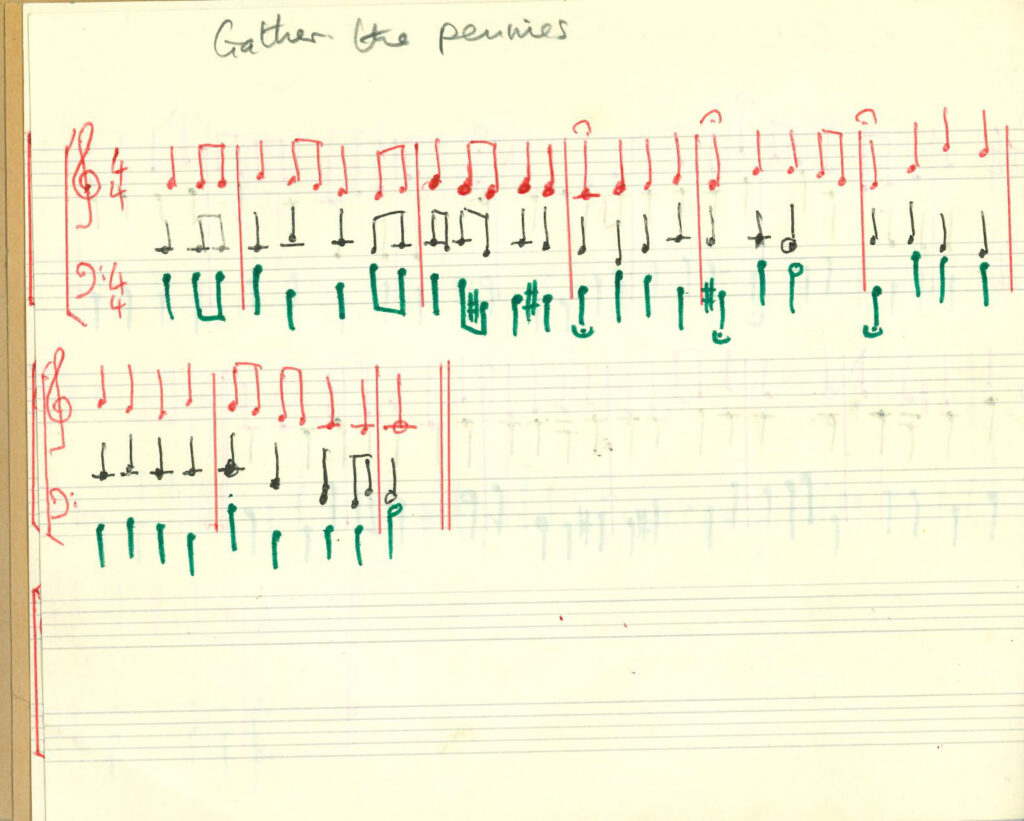 Gather the pennies
4
4
4
4